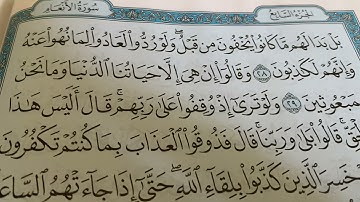 الجزء السابع
سورة الأنعام
بَلْ بَدَا لَهُم مَّا كَانُوا۟ يُخْفُونَ مِن قَبْلُ ۖ وَلَوْ رُدُّوا۟ لَعَادُوا۟ لِمَا نُهُوا۟ عَنْهُ
وَإِنَّهُمْ لَكَٰذِبُونَ ٢٨ وَقَالُوٓا۟ إِنْ هِىَ إِلَّا حَيَاتُنَا ٱلدُّنْيَا وَمَا نَحْنُ
بِمَبْعُوثِينَ ٢٩ وَلَوْ تَرَىٰٓ إِذْ وُقِفُوا۟ عَلَىٰ رَبِّهِمْ ۚ قَالَ أَلَيْسَ هَٰذَا
قَالُوا۟ بَلَىٰ وَرَبِّنَا ۚ قَالَ فَذُوقُوا۟ ٱلْعَذَابَ بِمَا كُنتُمْ تَكْفُرُونَ
خَسِرَ ٱلَّذِينَ كَذَّبُوا۟ بِلِقَآءِ ٱللَّهِ ۖ حَتَّىٰٓ إِذَا جَآءَتْهُمُ